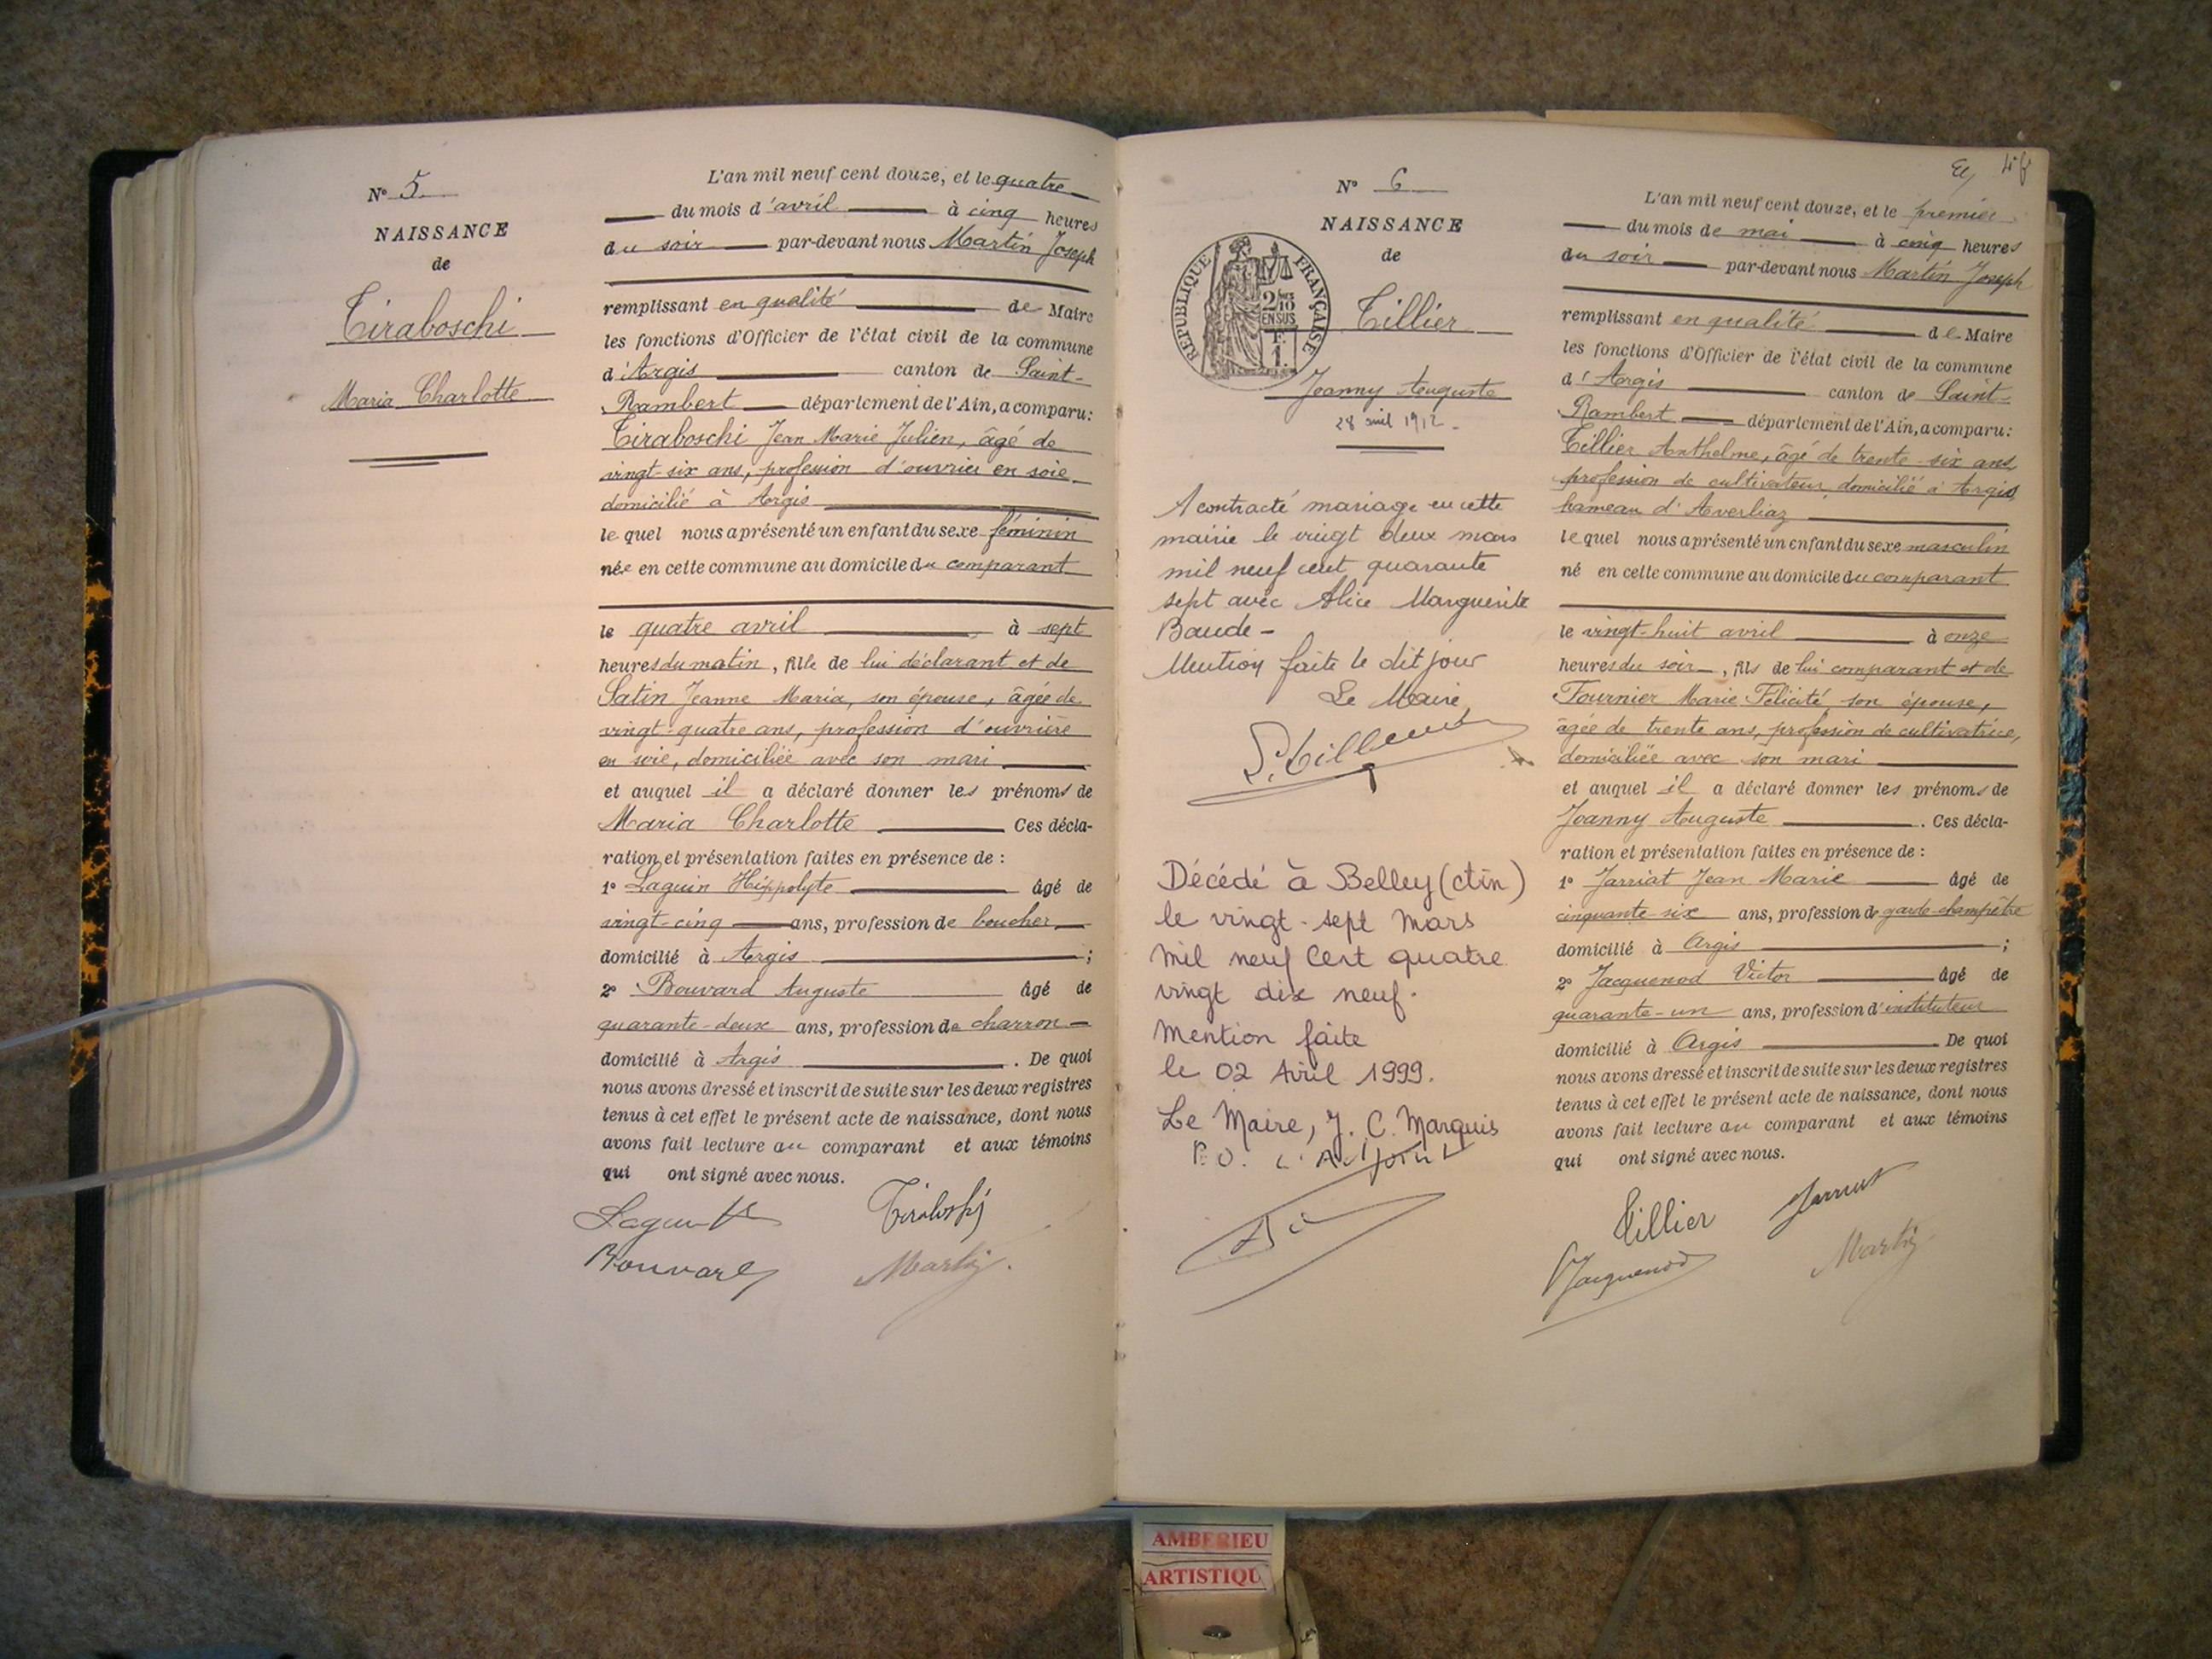 Nº 5
NAISSANCE
de
Tiraboschi
Maria Charlotte
L'an mil neuf cent douze, et le quatre
du mois d'avril à cinq heures
du soir par-devant nous Martin Joseph
remplissant en qualité de Maire
les fonctions d'Officier de l'état civil de la commune
d'Argis canton de Saint-
Rambert département de l'Ain, a comparu:
Tiraboschi Jean Marie Julien, âgé de
vingt-six ans, profession d'ouvrier en soie
domicilié à Argis
lequel nous a présenté un enfant du sexe féminin
née en cette commune au domicile du comparant
le quatre avril à sept
heures du matin, fille de lui déclarant et de
Satin Jeanne Maria, son épouse, âgée de
vingt-quatre ans, profession d'ouvrière
en soie, domiciliée avec son mari
et auquel il a déclaré donner les prénoms de
Maria Charlotte Ces décla-
ration et présentation faites en présence de :
1º Laguin Hippolyte âgé de
vingt-cinq ans, profession de boucher
domicilié à Argis ;
2º Bouvard Auguste âgé de
quarante-deux ans, profession de charron
domicilié à Argis . De quoi
nous avons dressé et inscrit de suite sur les deux registres
tenus à cet effet le présent acte de naissance, dont nous
avons fait lecture au comparant et aux témoins
qui ont signé avec nous.
Tiraboschi
Bouvard Martin
Nº 6
NAISSANCE
de
RÉPUBLIQUE FRANÇAISE
2/10
EN SUS
F.
1.
Tillier
Joanny Auguste
28 avril 1912
A contracté mariage en cette
mairie le vingt deux mars
mil neuf cent quarante
sept avec Alice Marguerite
Baude -
Mention faite le dit jour
Le Maire
Décédé à Belley (Ain)
le vingt-sept Mars
Mil neuf Cent quatre
vingt dix neuf.
Mention faite
le 02 Avril 1999.
Le Maire, J. C. Marquis
P.O. L'Adjoint
L'an mil neuf cent douze, et le premier
du mois de mai à cinq heures
du soir par-devant nous Martin Joseph
remplissant en qualité de Maire
les fonctions d'Officier de l'état civil de la commune
d'Argis canton de Saint-
Rambert département de l'Ain, a comparu:
Tillier Anthelme, âgé de trente-six ans
profession de cultivateur, domicilié à Argis
hameau d'Averliaz
lequel nous a présenté un enfant du sexe masculin
né en cette commune au domicile du comparant
le vingt-huit avril à onze
heures du soir, fils de lui comparant et de
Fournier Marie Félicité son épouse,
âgée de trente ans, profession de cultivatrice,
domiciliée avec son mari
et auquel il a déclaré donner les prénoms de
Joanny Auguste . Ces décla-
ration et présentation faites en présence de :
1º Jarriat Jean Marie âgé de
cinquante-six ans, profession de garde-champêtre
domicilié à Argis ;
2º Jacquenod Victor âgé de
quarante-un ans, profession d'instituteur
domicilié à Argis De quoi
nous avons dressé et inscrit de suite sur les deux registres
tenus à cet effet le présent acte de naissance, dont nous
avons fait lecture au comparant et aux témoins
qui ont signé avec nous.
Tillier Jarriat
Jacquenod Martin
AMBERIEU
ARTISTIQU